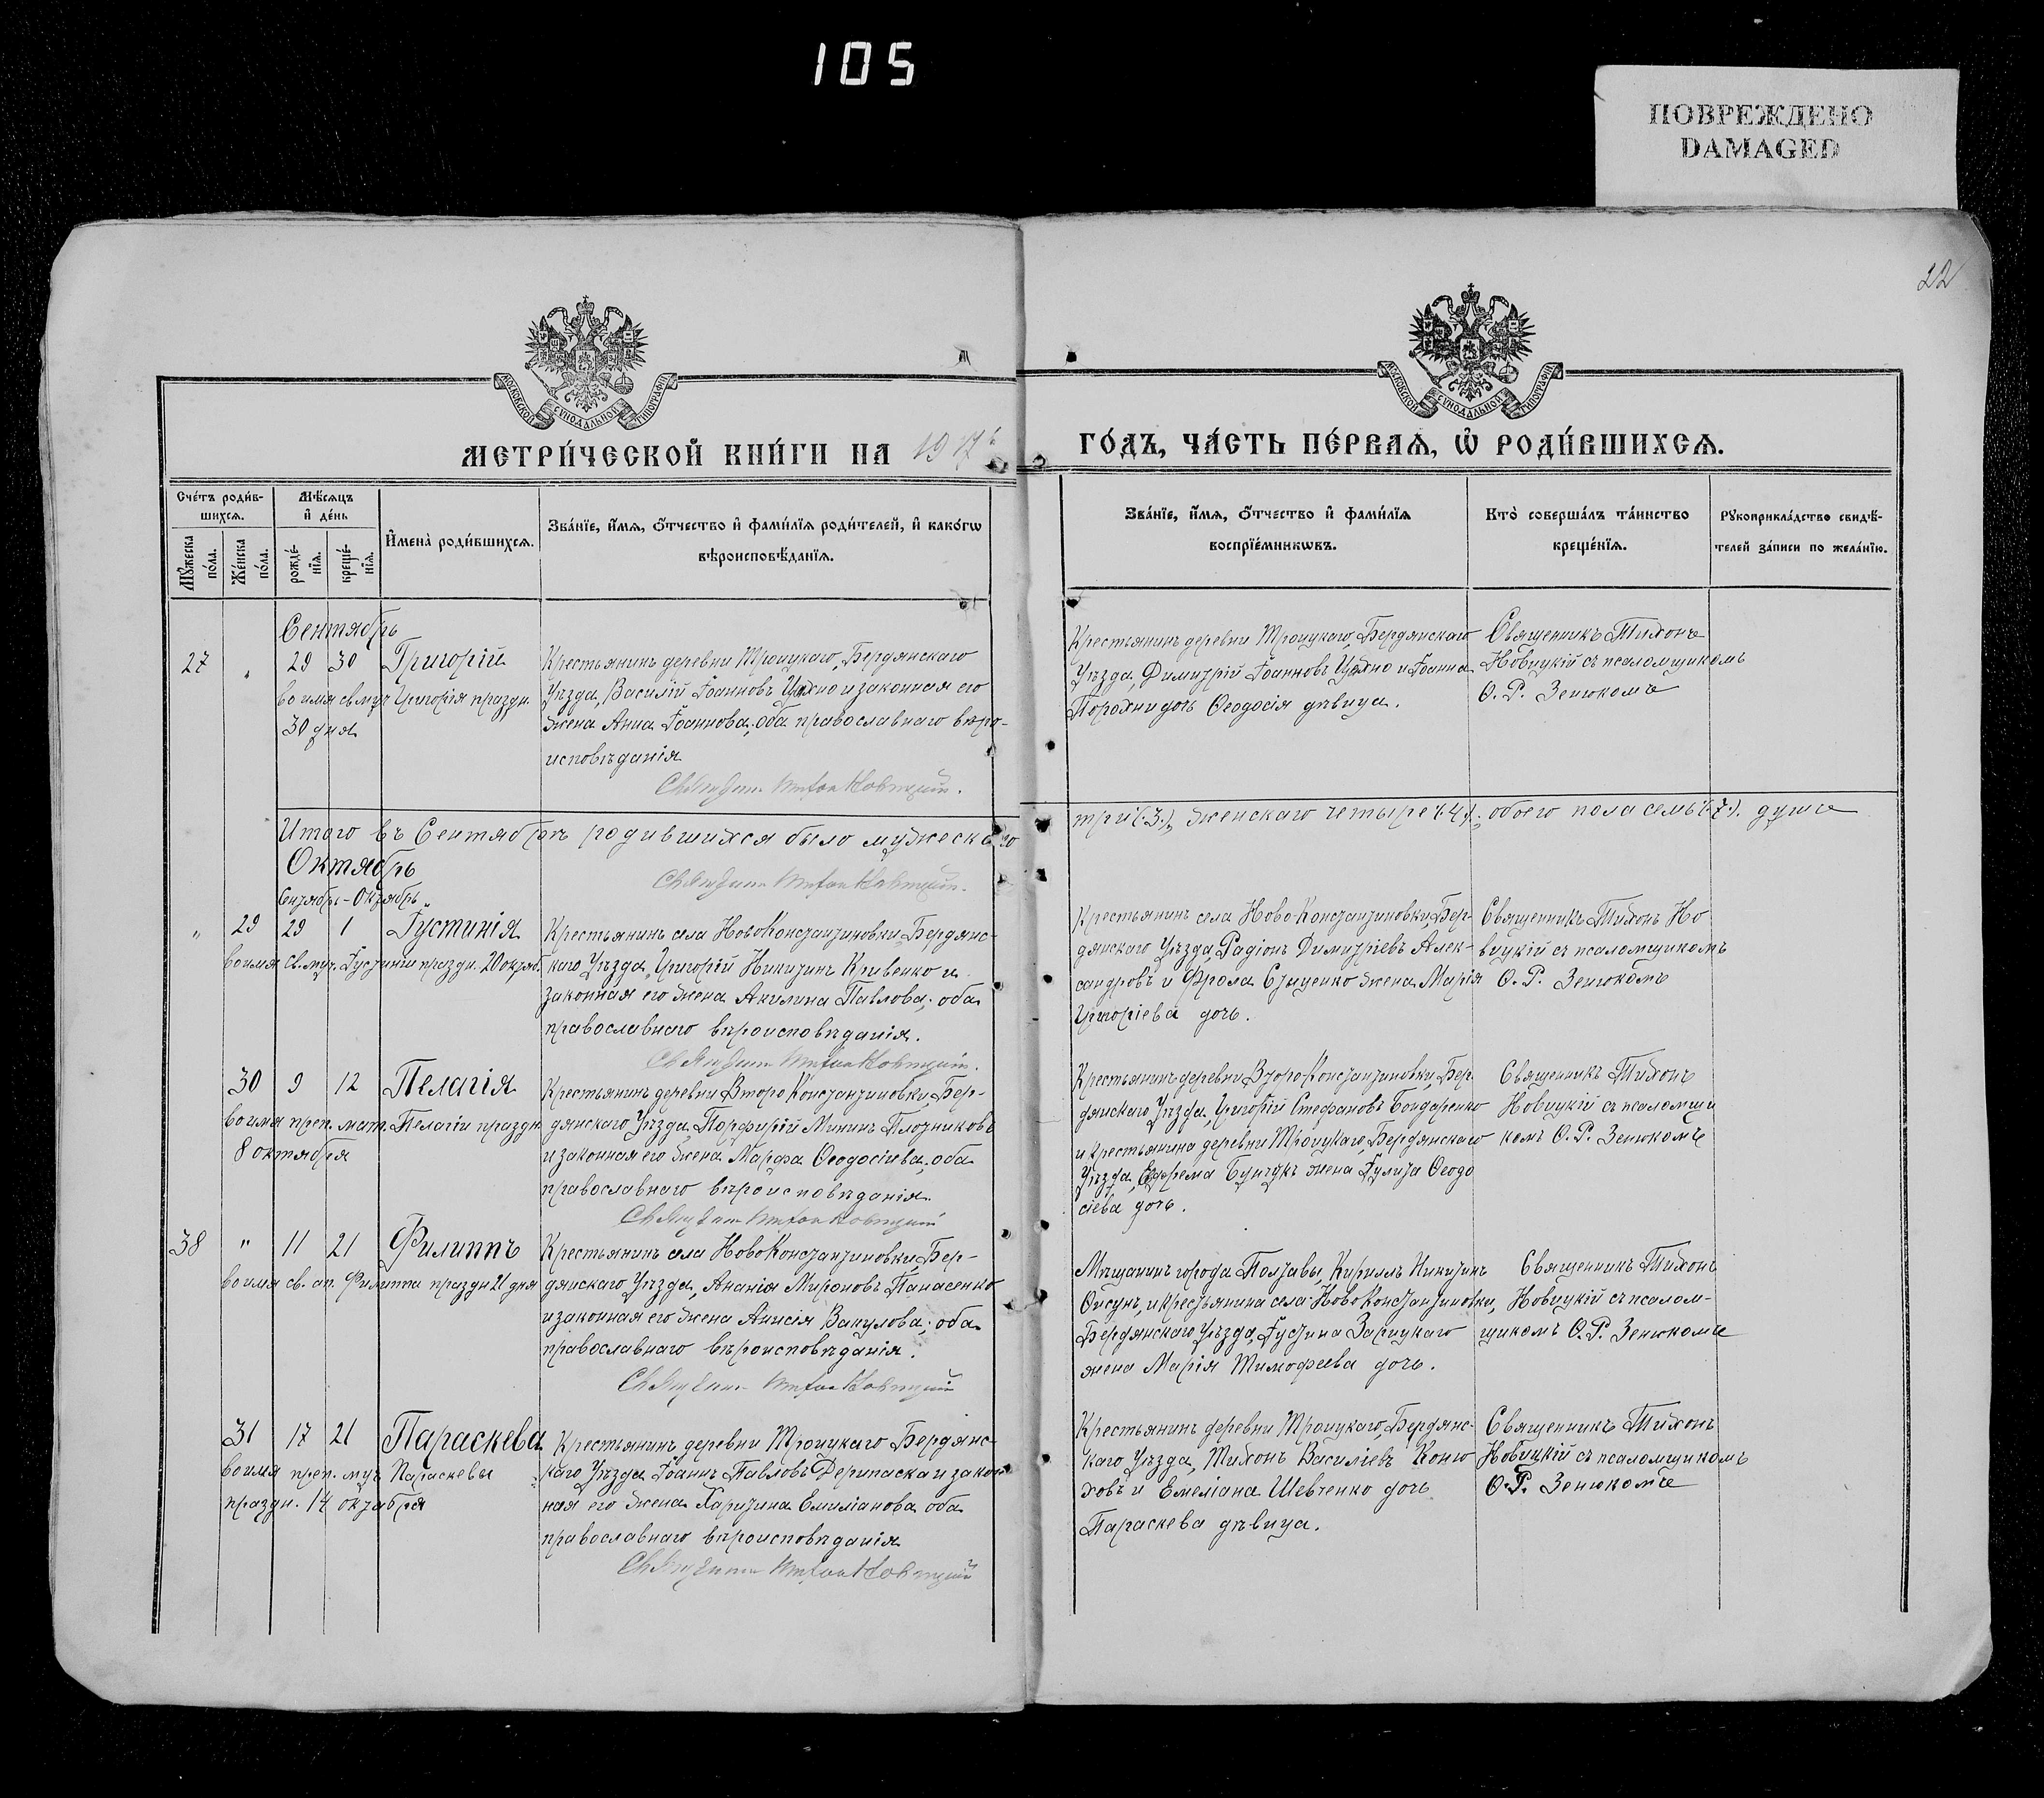 105
ПОВРЕЖДЕНО
DAMAGED
22
МОСКОВСКОЙ СѴНОДАЛЬНОЙ ТИПОГРАФІИ
МОСКОВСКОЙ СѴНОДАЛЬНОЙ ТИПОГРАФІИ
МЕТРИ́ЧЕСКОЙ КНИ́ГИ НА 1917
ГО́ДЪ, ЧА́СТЬ ПЕ́РВАѦ, Ѡ҆ РОДИ́ВШИХСѦ.
Сче́тъ роди́в-
шихсѧ.
Мꙋ́жеска по́ла.
Же́нска по́ла.
Мѣ́сѧцъ
и҆ де́нь
рожде́-
нїѧ.
креще́-
нїѧ.
И҆мена̀ роди́вшихсѧ.
Зва́нїе, и҆́мѧ, ѻ҆́тчество и҆ фами́лїѧ роди́телей, и҆ како́гѡ
вѣроисповѣ́данїѧ.
Зва́нїе, и҆́мѧ, ѻ҆́тчество и҆ фами́лїѧ
воспрїе́мникѡвъ.
Кто̀ соверша́лъ та́инство
креще́нїѧ.
Рꙋкоприкла́дство свидѣ́-
телей за́писи по жела́нїю.
Сентябрь
27 „ 29 30 Григорій
во имя св. муч Григорія праздн.
30 дня
Крестьянинъ деревни Троицкаго, Бердянскаго
Уѣзда, Василій Іоанновъ и законная его
жена Анна Іоаннова; оба православнаго вѣро-
исповѣданія
Священ. Тихон Новицкий.
Крестьянинъ деревни Троицкаго, Бердянскаго
Уѣзда, Димитрій Іоанновъ и Іоанна
Порохни дочь Ѳеодосія дѣвица.
Священникъ Тихонъ
Новицкій съ псаломщикомъ
Ѳ. Р. Зенюкомъ
Итого въ Сентябрѣ родившихся было мужеского
три (3), женскаго четыре (4); обоего пола семь (7). душъ
Священ. Тихон Новицкий.
Октябрь
Сентябрь-Октябрь
„ 29 29 1 Іустинія
во имя св. муч. Іустиніи праздн. 20 октяб.
Крестьянинъ села НовоКонстантиновки, Бердянс-
каго Уѣзда, Григорій Никитинъ Кривенко и
законная его жена Акилина Павлова; оба
православнаго вѣроисповѣданія.
Священ. Тихон Новицкий.
Крестьянинъ села Ново-Константиновки, Бер-
дянскаго Уѣзда, Радіонъ Димитріевъ Алек-
сандровъ и Фрола Стыценко жена Марія
Григоріева дочь.
Священникъ Тихонъ Но
вицкій съ псаломщикомъ
Ѳ. Р. Зенюкомъ
30 9 12 Пелагія
во имя преп. мат. Пелагіи праздн
8 октября
Крестьянинъ деревни ВтороКонстантиновки, Бер-
дянскаго Уѣзда, Порфирій Мининъ Плотниковъ
и законная его жена Марфа Ѳеодосіева, оба
православнаго вѣроисповѣданія.
Священ. Тихон Новицкий
Крестьянинъ деревни ВтороКонстантиновки, Бер
дянскаго Уѣзда, Григорій Стефановъ Бондаренко
и крестьянина деревни Троицкаго, Бердянскаго
Уѣзда, Ефрема Бунчукъ жена Іулита Ѳеодо
сіева дочь.
Священникъ Тихонъ
Новицкій съ псаломщи
комъ Ѳ. Р. Зенюкомъ
38 „ 11 21 Филиппъ
во имя св. ап. Филиппа праздн 21 дня
Крестьянинъ села НовоКонстантиновки, Бер-
дянскаго Уѣзда, Ананія Мироновъ Панасенко
и законная его жена Анисія Вакулова; оба
православнаго вѣроисповѣданія.
Священ. Тихон Новицкий
Мѣщанинъ города Полтавы, Кириллъ Никитинъ
и крестьянина села НовоКонстантиновки,
Бердянскаго Уѣзда, Іустина Зарицкаго
жена Марія Тимофеева дочь.
Священникъ Тихонъ
Новицкій съ псалом-
щикомъ Ѳ. Р. Зенюкомъ
31 17 21 Параскева
во имя преп. муч Параскевы
праздн. 14 октября
Крестьянинъ деревни Троицкаго Бердянс-
каго Уѣзда Іоаннъ Павловъ Дерипаска и закон
ная его жена Харитина Емиліанова оба
православнаго вѣроисповѣданія
Священ. Тихон Новицкий
Крестьянинъ деревни Троицкаго, Бердянс-
каго Уѣзда, Тихонъ Василіевъ Коню
ховъ и Емеліана Шевченко дочь
Параскева дѣвица.
Священникъ Тихонъ
Новицкій съ псаломщикомъ
Ѳ. Р. Зенюкомъ